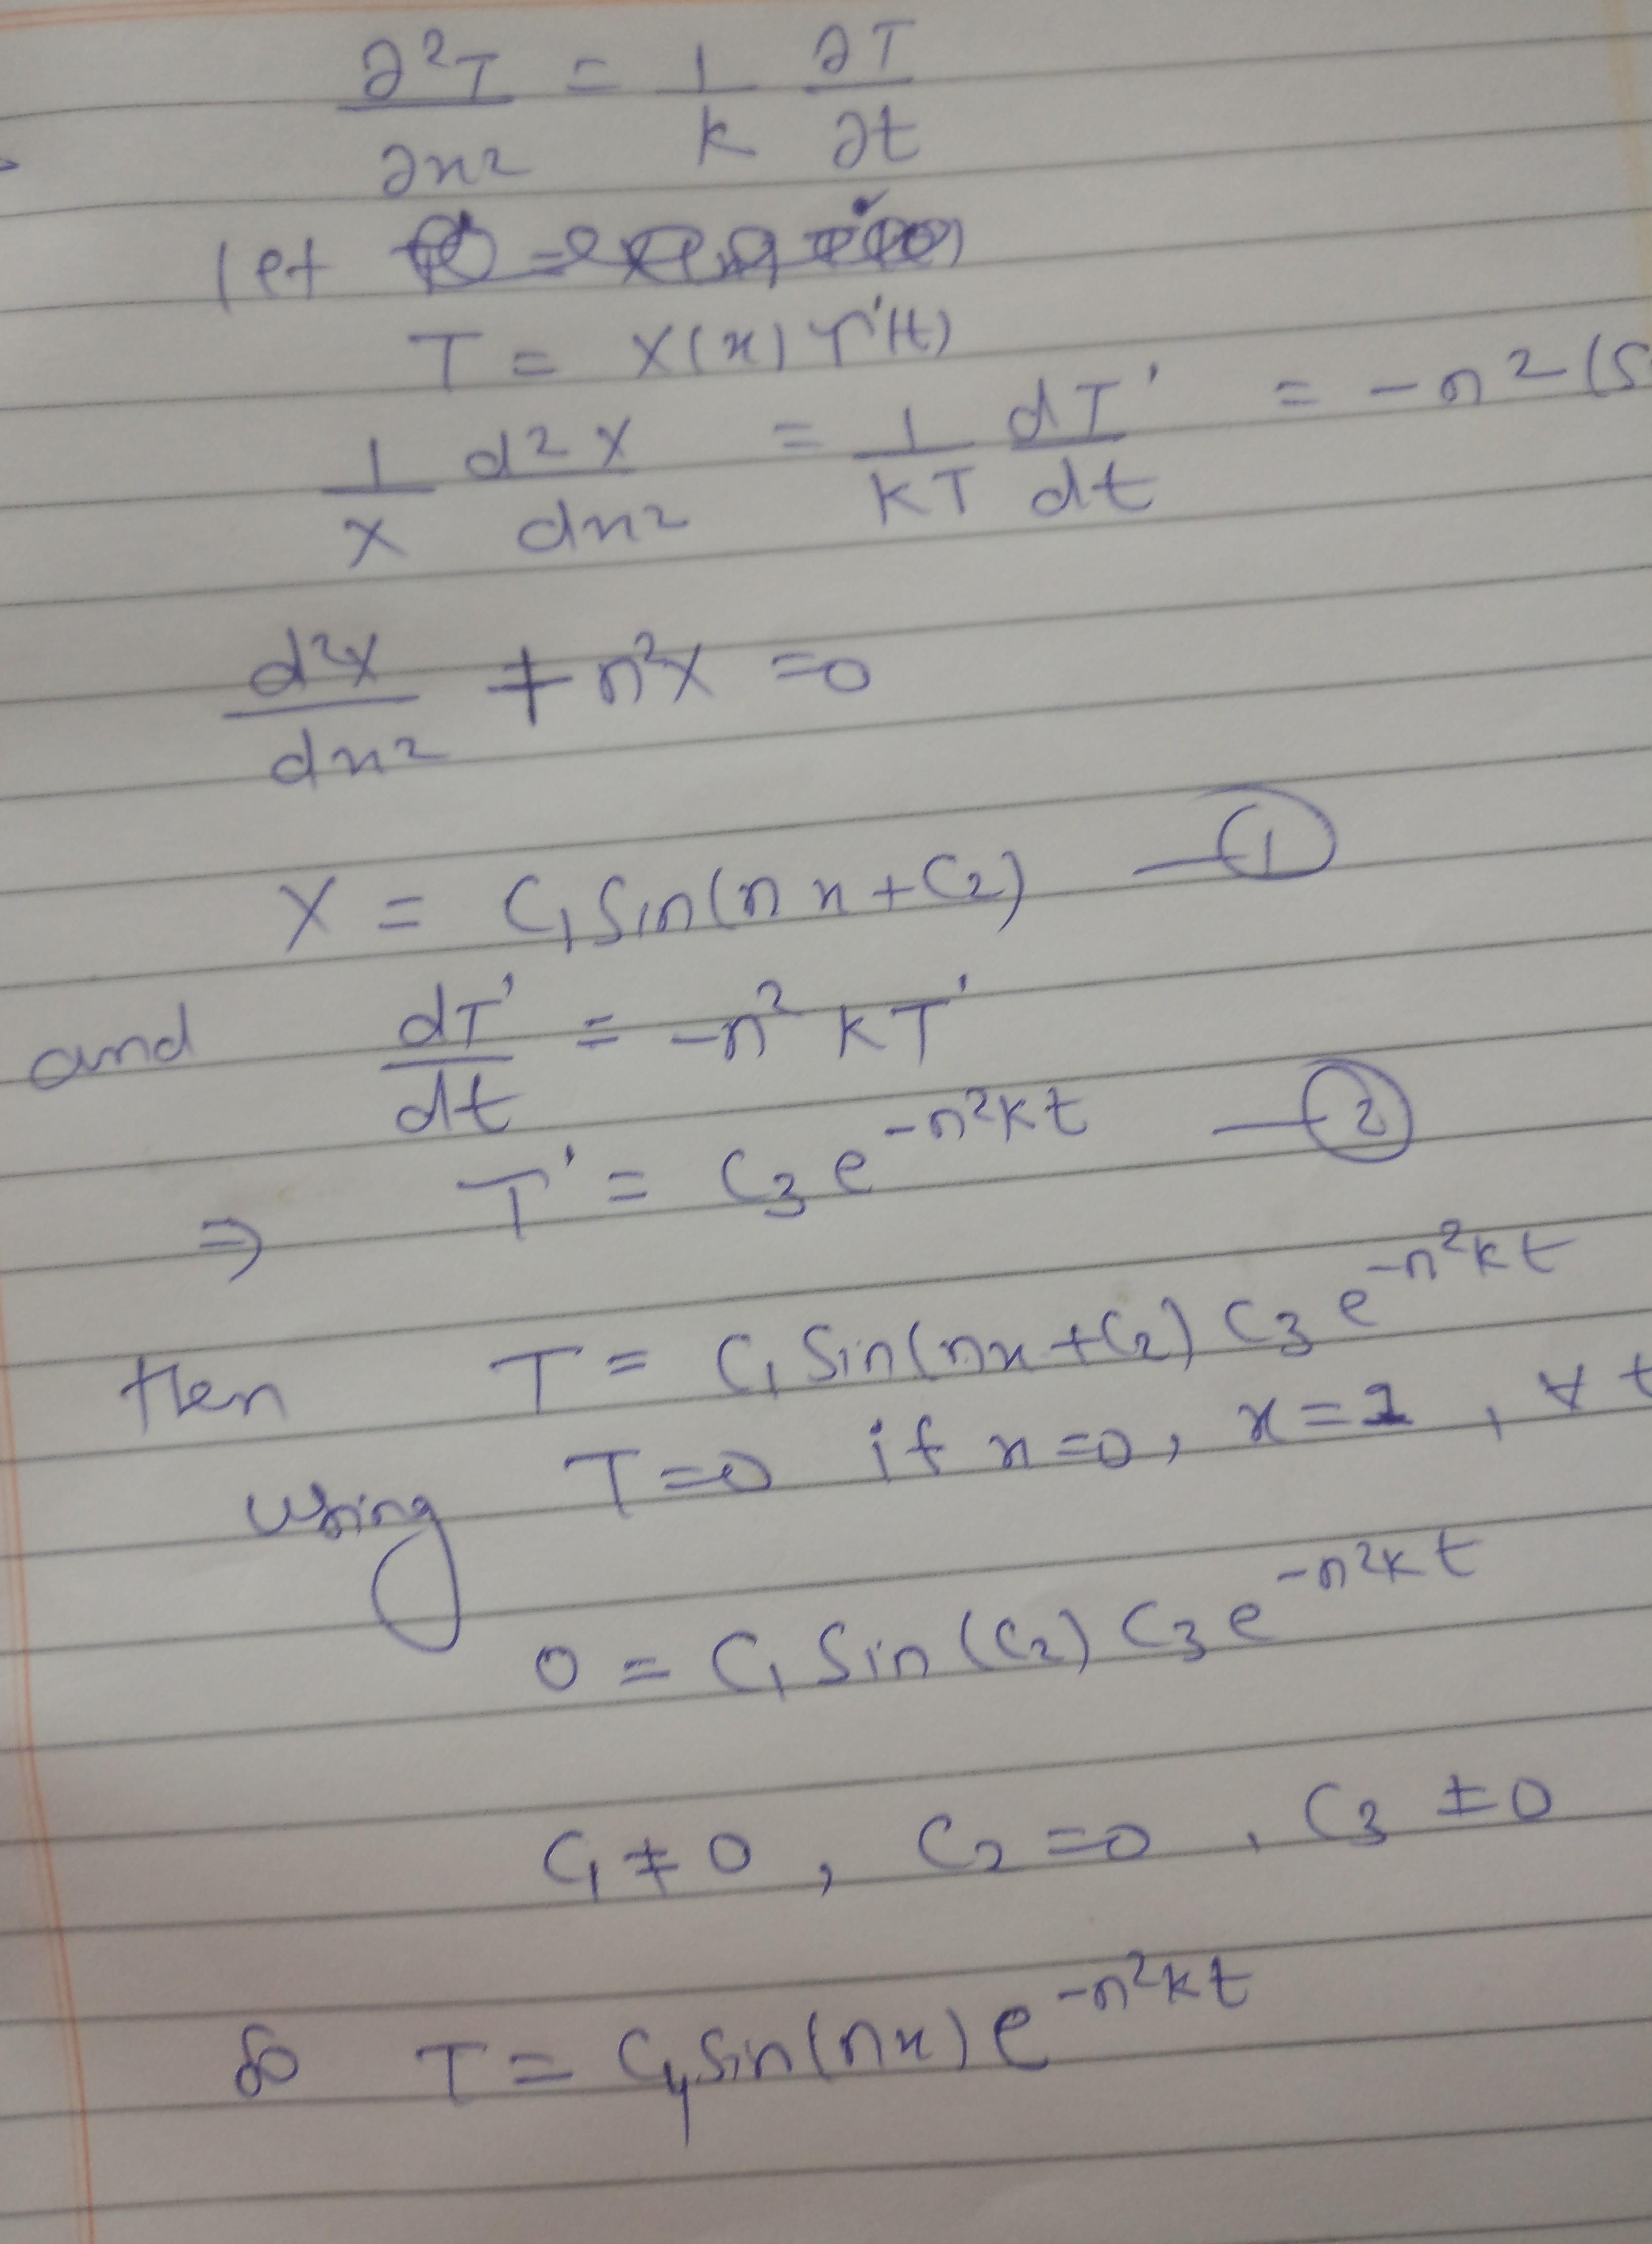 ∂²T/∂x² = 1/k ∂T/∂t
let
T = X(x) T'(t)
1/X d²X/dx² = 1/kT dT'/dt = -n² (S
d²X/dx² + n²X = 0
X = C₁ Sin(nx + C₂) — ①
and dT'/dt = -n² kT'
⇒ T' = C₃ e^{-n²kt} — ②
then T = C₁ Sin(nx + C₂) C₃ e^{-n²kt}
using T = 0 if x = 0, x = 1, ∀ t
0 = C₁ Sin(C₂) C₃ e^{-n²kt}
C₁ ≠ 0, C₂ = 0, C₃ ≠ 0
So T = C₄ Sin(nx) e^{-n²kt}